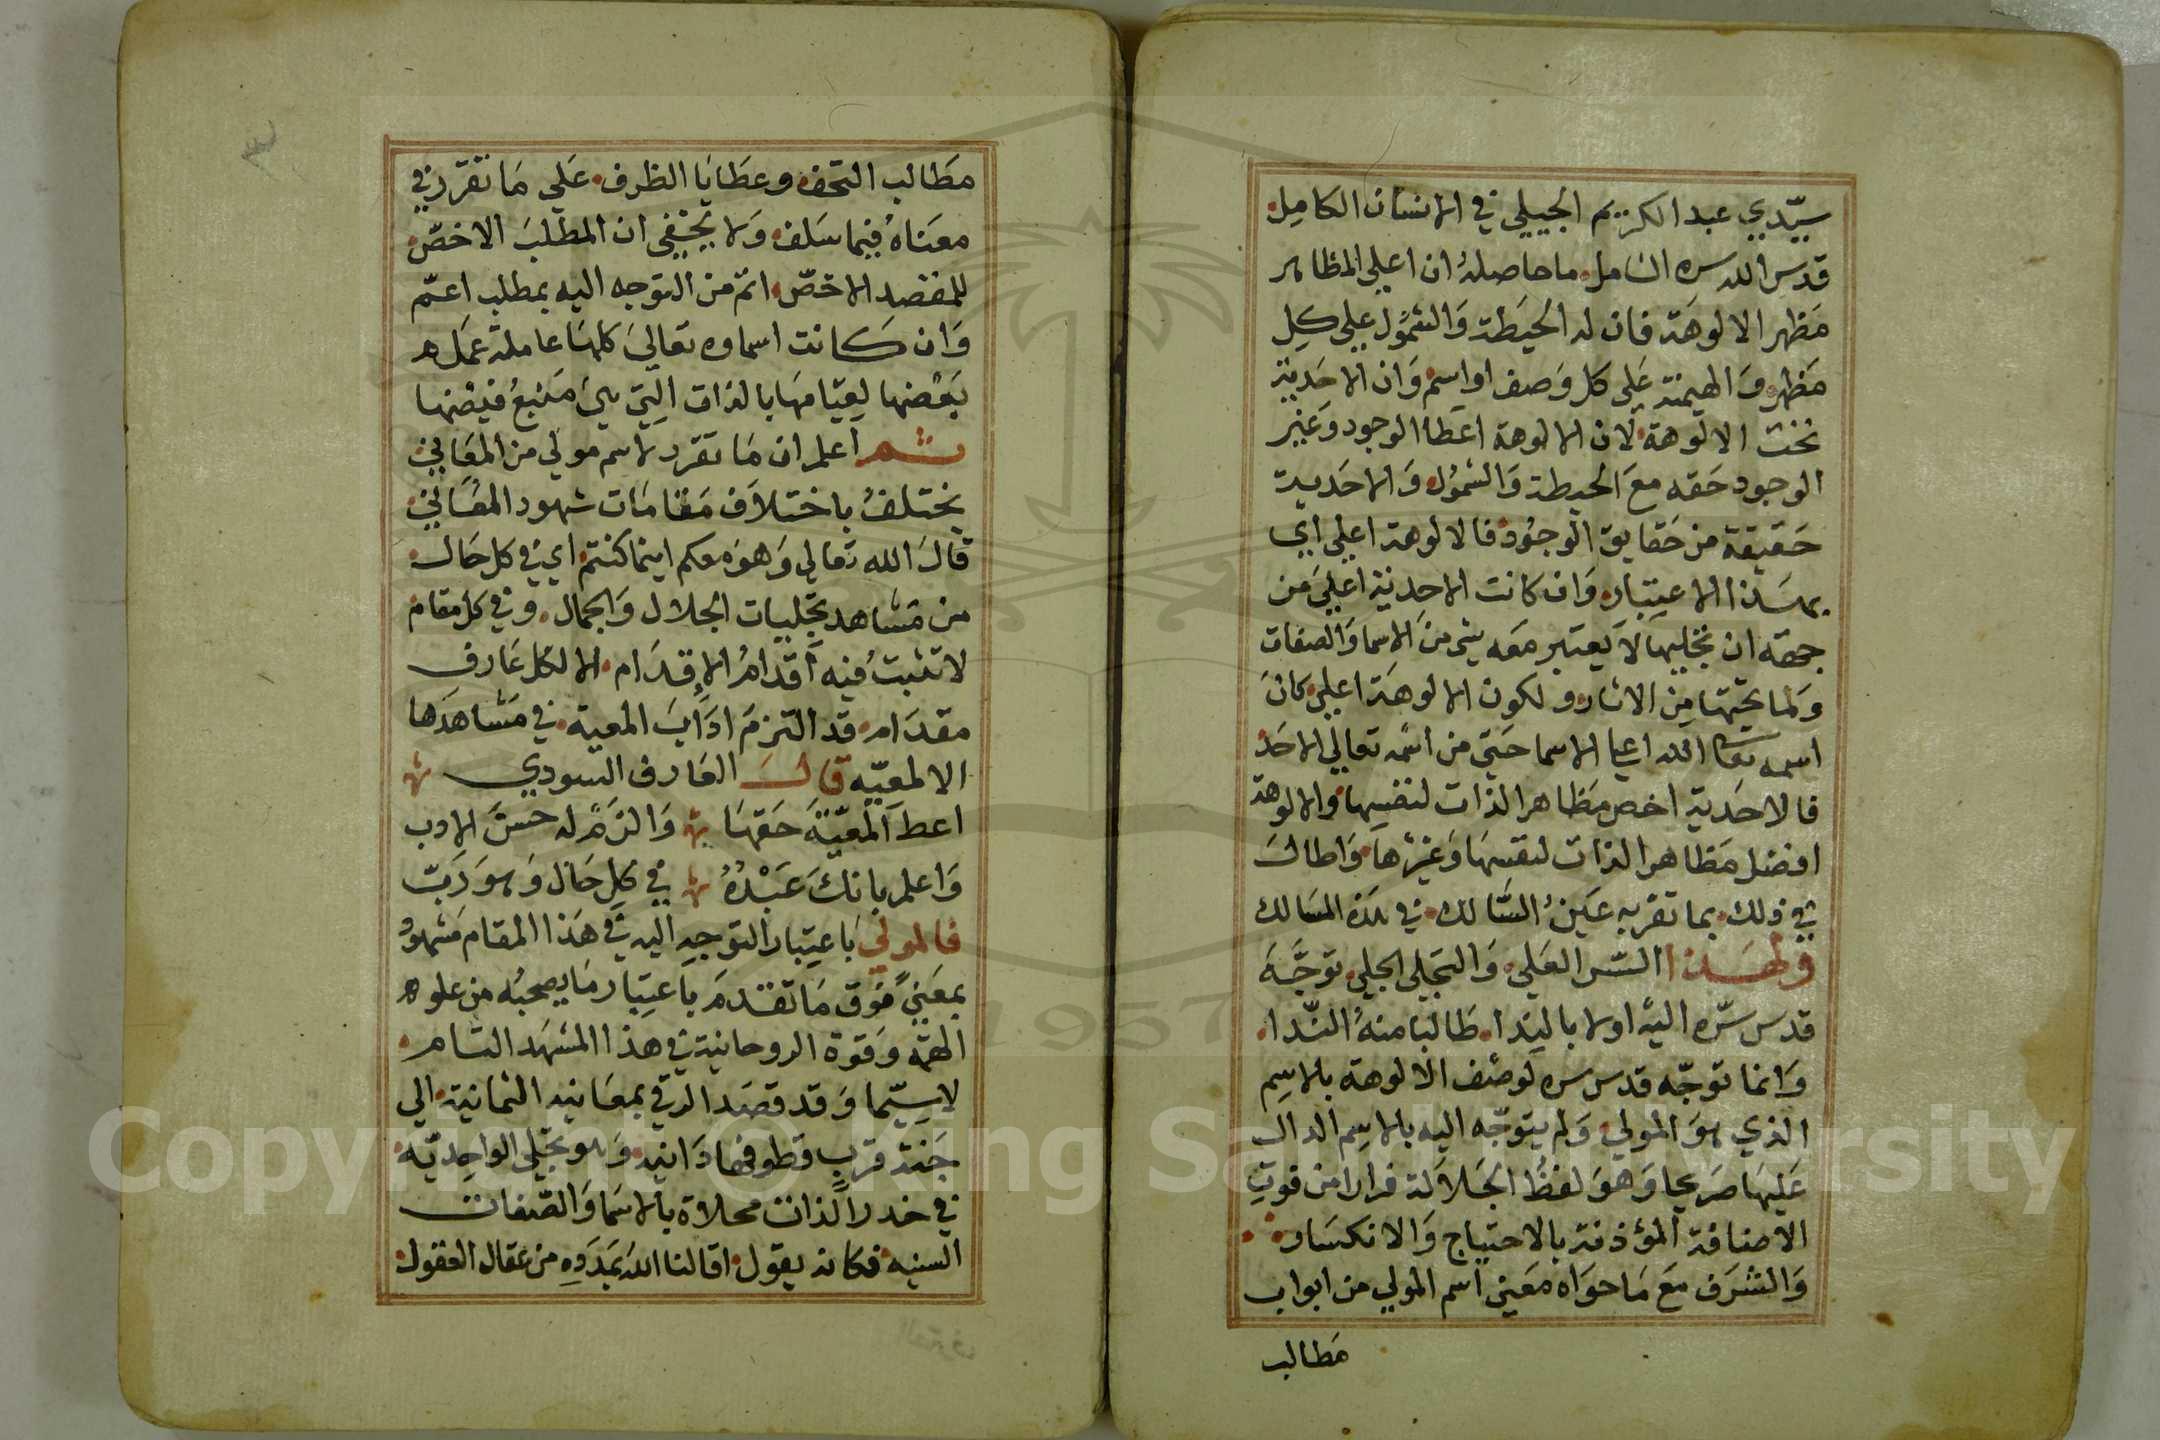 سيّدي عبد الكريم الجيلي في الانسان الكامل
قدس الله سره الشامل ما حاصله ان اعلي المظاهر
مَظهر الالوهَة فان له الحيَطة وَالشمُول علي كل
مَظهر وَالهيمنة عَلي كل وَصف او اسم وَان الاحَدية
تحت الالوهة لان الالوهة اعطا الوجود وغير
الوجود حَقه معَ الحيطة وَالشمُول وَالاحَدية
حَقيقة من حَقايق الوجُود فالالوهة اعلي اي
بهَذا الاعتِبار وَان كانت الاحِدية اعلي من
جهة ان تجليها لا يعتبر معَه شي من الاسما وَالصفات
وَلما تحتها مِن الاثار ولكون الالوهَة اعلي كانَ
اسمه تعالي الله اعلي الاسما حَتي من اسمه تعالي الاحَد
فالاحَدية اخص مَظاهر الذات لنفسِها والالوهة
افضل مَظاهر الذات لنفسهَا وَغيرها وَاطالَ
في ذلك بما تقر به عَينُ السَّالك في هَذه المسَالك
وَلهَذا السّر العَلي وَالتجَلي الجلي توجَّه
قدس سّره اليه اولا بالنِدا طَالبا منهُ النّدا
وَانما توجّه قدس سره لوصْف الالوهة بالاسِم
الذي هوَ المولي وَلم يتوجّه اليه بالاسِم الدال
عَليهَا صَريحا وَهوَ لفظُ الجَلالة فرارا من فوتِ
الاضافة المؤذنة بالاحتيَاج وَالانكسَار
وَالشرَف معَ مَا حوَاه معَني اسم المولي من ابواب
مَطالب
مَطالب التحف وعطَايَا الظرف عَلي مَا تقرّر في
معَناهُ فيما سَلف وَلا يخْفي ان المطْلبَ الاخصّ
للمقصدِ الاخصّ اتمّ من التوجه اليه بمطلب اعمّ
وَان كانت اسماوه تعَالي كلهَا عاملة عمَل
بَعْضها لِقيَامهَا بالذات التِي هيَ مَنبعُ فيضْها
ثم اعلم ان مَا تقرر لاسم مولي من المعَاني
يختلفُ باختلاف مَقامَات شهود المعَاني
قالَ الله تعالي وَهوَ معكم اينما كنتم اي في كل حَال
من مَشاهد تجَليات الجلال وَالجمال وفي كل مقام
لا تثبتُ فيه اَقدامُ الاِقدَام الا لكل عَارف
مقدَام قد التزمَ ادَابَ المعية في مَشاهدَها
الالمعيّه قال العَارف السودي
اعط المعَيّةَ حَقهَا وَالزَمْ له حسنَ الادب
وَاعلم بانكَ عَبْدُهُ في كل حَال وَهوَ رَبّ
فالمولي بَاعتِبار التوجهِ اليه في هَذا المقام مَشهود
بمعَنيً فوق مَا تقدمَ باعتِبار مَا يصحبُه من علو
الهمّة وَقوة الروحانية في هذا المشهَد التام
لاسِيّما وَقد قصَد الرقي بمعَانيه الثمانية الي
جَنة قربٍ قطوفها دَانية وَهو تجَلي الواحِدية
في خدر الذات محلاة بالاسمَا وَالصّفات
السنيه فكانه يقول اقالنا الله بمَدَده من عقال العقول